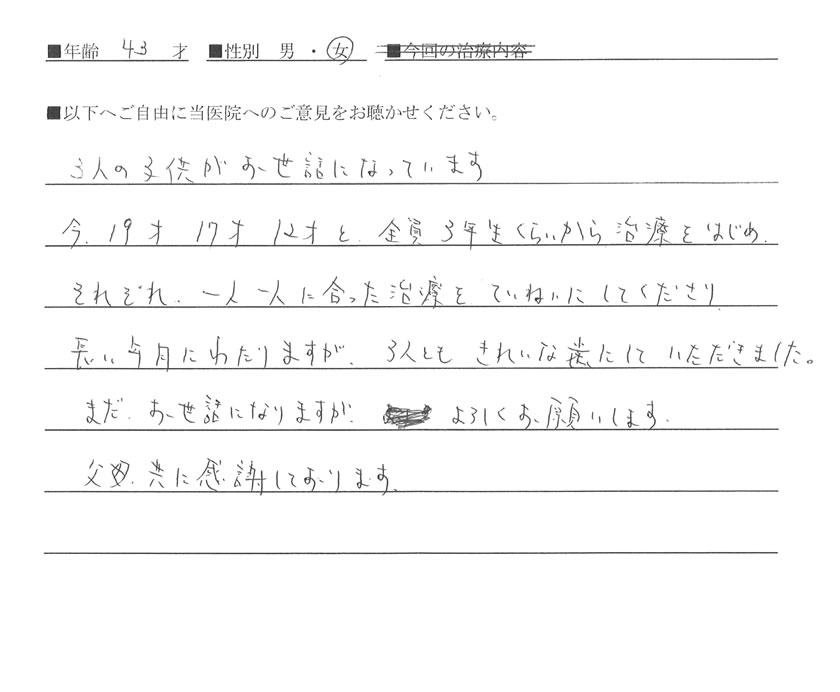 ■年齢 43 才 ■性別 男 ・ 女 ■今回の治療内容
■以下へご自由に当医院へのご意見をお聴かせください。
3人の子供がお世話になっています
今、19才 17才 12才と、全員3年生くらいから治療をはじめ、
それぞれ、一人一人に合った治療を、ていねいにしてくださり
長い年月にわたりますが、3人ともきれいな歯にしていただきました。
まだ、お世話になりますが、よろしくお願いします。
父母、共に感謝しております。